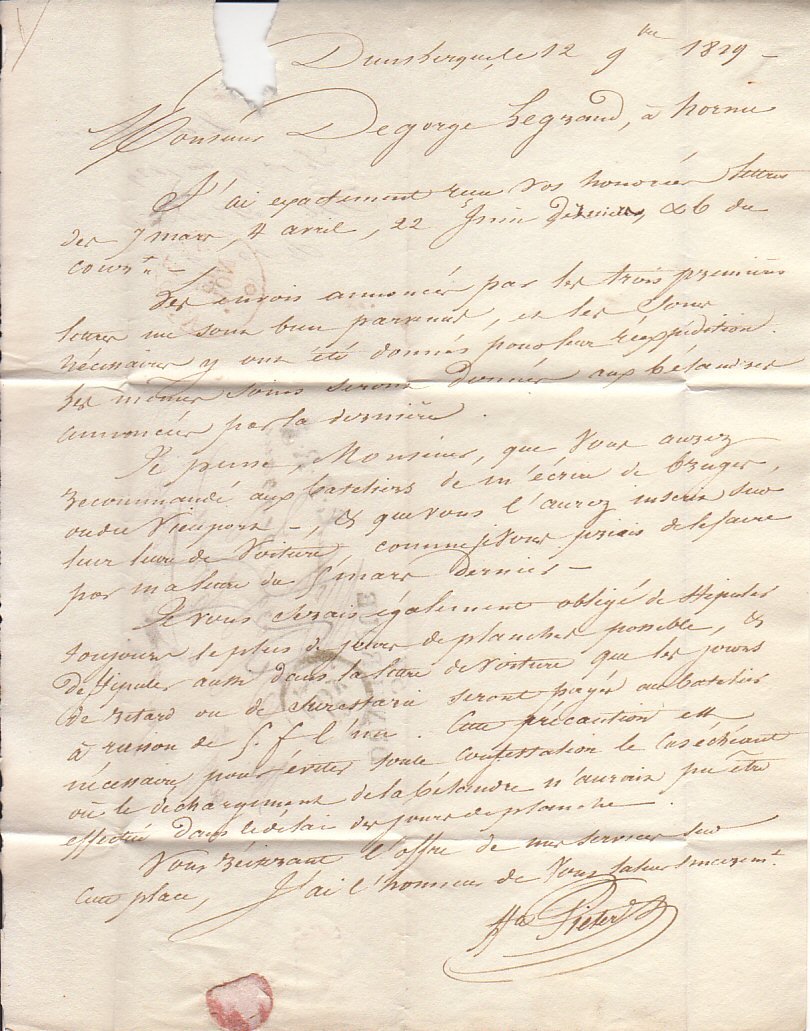 Dunkerque, le 12 9bre 1819 -
Monsieur Degorge Legrand, à hornu
J'ai exactement reçu vos honorées lettres
des 7 mars, 4 avril, 22 Juin dernier, & 6 du
cour.t -
Les envois annoncés par les trois premières
lettres me sont bien parvenus, et les soins
nécessaires y ont été donnés pour leur réexpédition.
Les mêmes soins seront donnés aux belandres
annoncées par la dernière.
Je pense Monsieur, que vous aurez
recommandé aux bateliers de m'écrire de bruges,
ou de Nieuport -, & que vous l'aurez inséré sur
leur lettre de Voiture, comme je vous priais de le faire
par ma lettre du 5 mars dernier -
Je vous serais également obligé de stipuler
toujours le plus de jours de planches possible, &
de stipuler aussi dans la lettre de voiture que les jours
de retard ou de surestarie seront payés au batelier
à raison de 5. f l'un. Cette précaution est
nécessaire, pour éviter toute contestation le cas échéant
où le déchargement de la bélandre n'aurait pu être
effectué dans le délai des jours de planche.
Vous réitérant l'offre de mes services sur
cette place, J'ai l'honneur de vous saluer sincèrem.t
Pieters